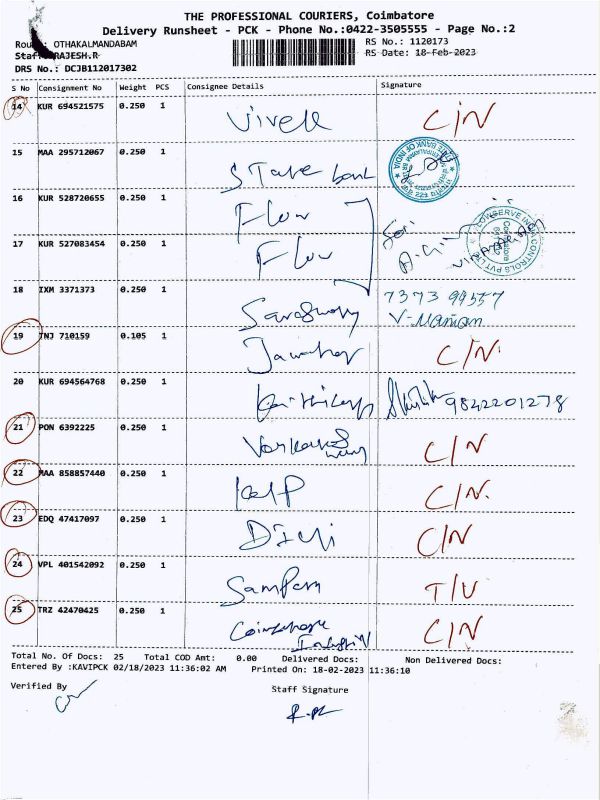 THE PROFESSIONAL COURIERS, Coimbatore
Delivery Runsheet - PCK - Phone No.:0422-3505555 - Page No.:2
Route: OTHAKALMANDABAM RS No.: 1120173
Staff: RAJESH.R RS Date: 18-Feb-2023
DRS No.: DCJB112017302
S No Consignment No Weight PCS Consignee Details Signature
14 KUR 694521575 0.250 1 C/N
15 MAA 295712067 0.250 1 State bank
16 KUR 528720655 0.250 1 Flow
17 KUR 527083454 0.250 1 Flow
18 IXM 3371373 0.250 1 7373 99557
V-Manian
19 TNJ 710159 0.105 1 C/N.
20 KUR 694564768 0.250 1 9842201278
21 PON 6392225 0.250 1 C/N
22 MAA 858857440 0.250 1 C/N.
23 EDQ 47417097 0.250 1 C/N
24 VPL 401542092 0.250 1 T/U
25 TRZ 42470425 0.250 1 Coimbatore C/N
Total No. Of Docs: 25 Total COD Amt: 0.00 Delivered Docs: Non Delivered Docs:
Entered By :KAVIPCK 02/18/2023 11:36:02 AM Printed On: 18-02-2023 11:36:10
Verified By Staff Signature